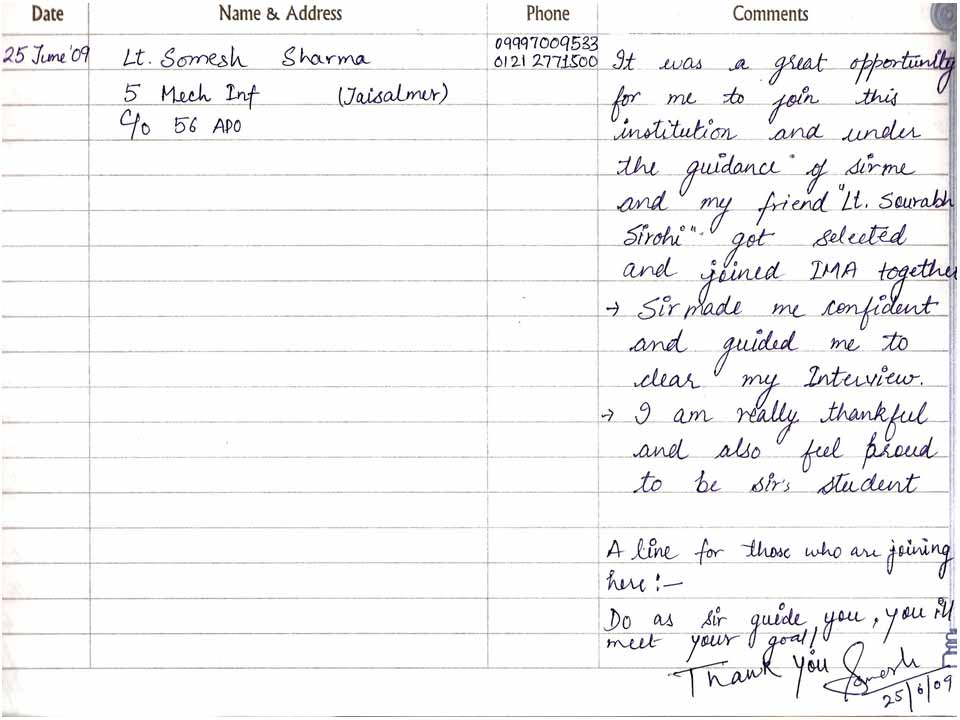 Date Name & Address Phone Comments
25 June '09 Lt. Somesh Sharma 09997009533
0121 2771500 It was a great opportunity
5 Mech Inf (Jaisalmer) for me to join this
C/o 56 APO institution and under
the guidance of sir me
and my friend "Lt. Sourabh
Sirohi" got selected
and joined IMA together
→ Sir made me confident
and guided me to
clear my Interview.
→ I am really thankful
and also feel proud
to be sir's student
A line for those who are joining
here :-
Do as sir guide you, you ill
meet your goal!
Thank you Somesh
25/6/09